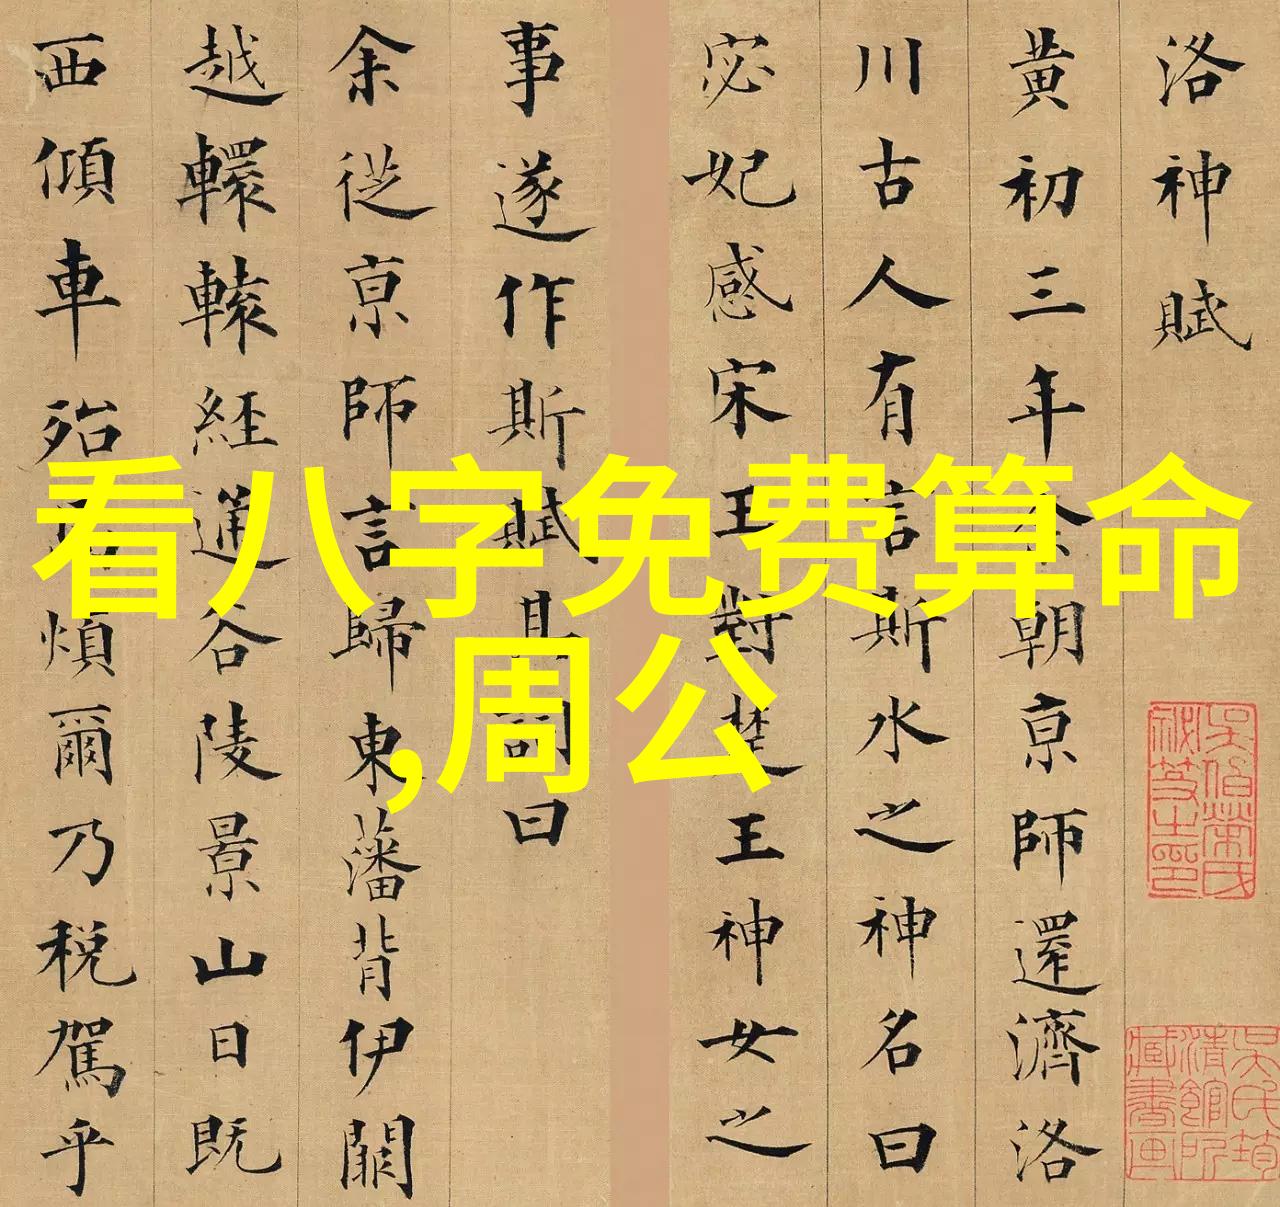 洛神賦
黄初三年余朝京師還濟洛
川古人有言斯水之神名曰
宓妃感宋玉對楚王神女之
事遂作斯賦其詞曰
余從京師言歸東藩背伊闕
越轘轅經通谷陵景山日既
西傾車殆馬煩爾乃税駕乎
看八字免费算命
,周公